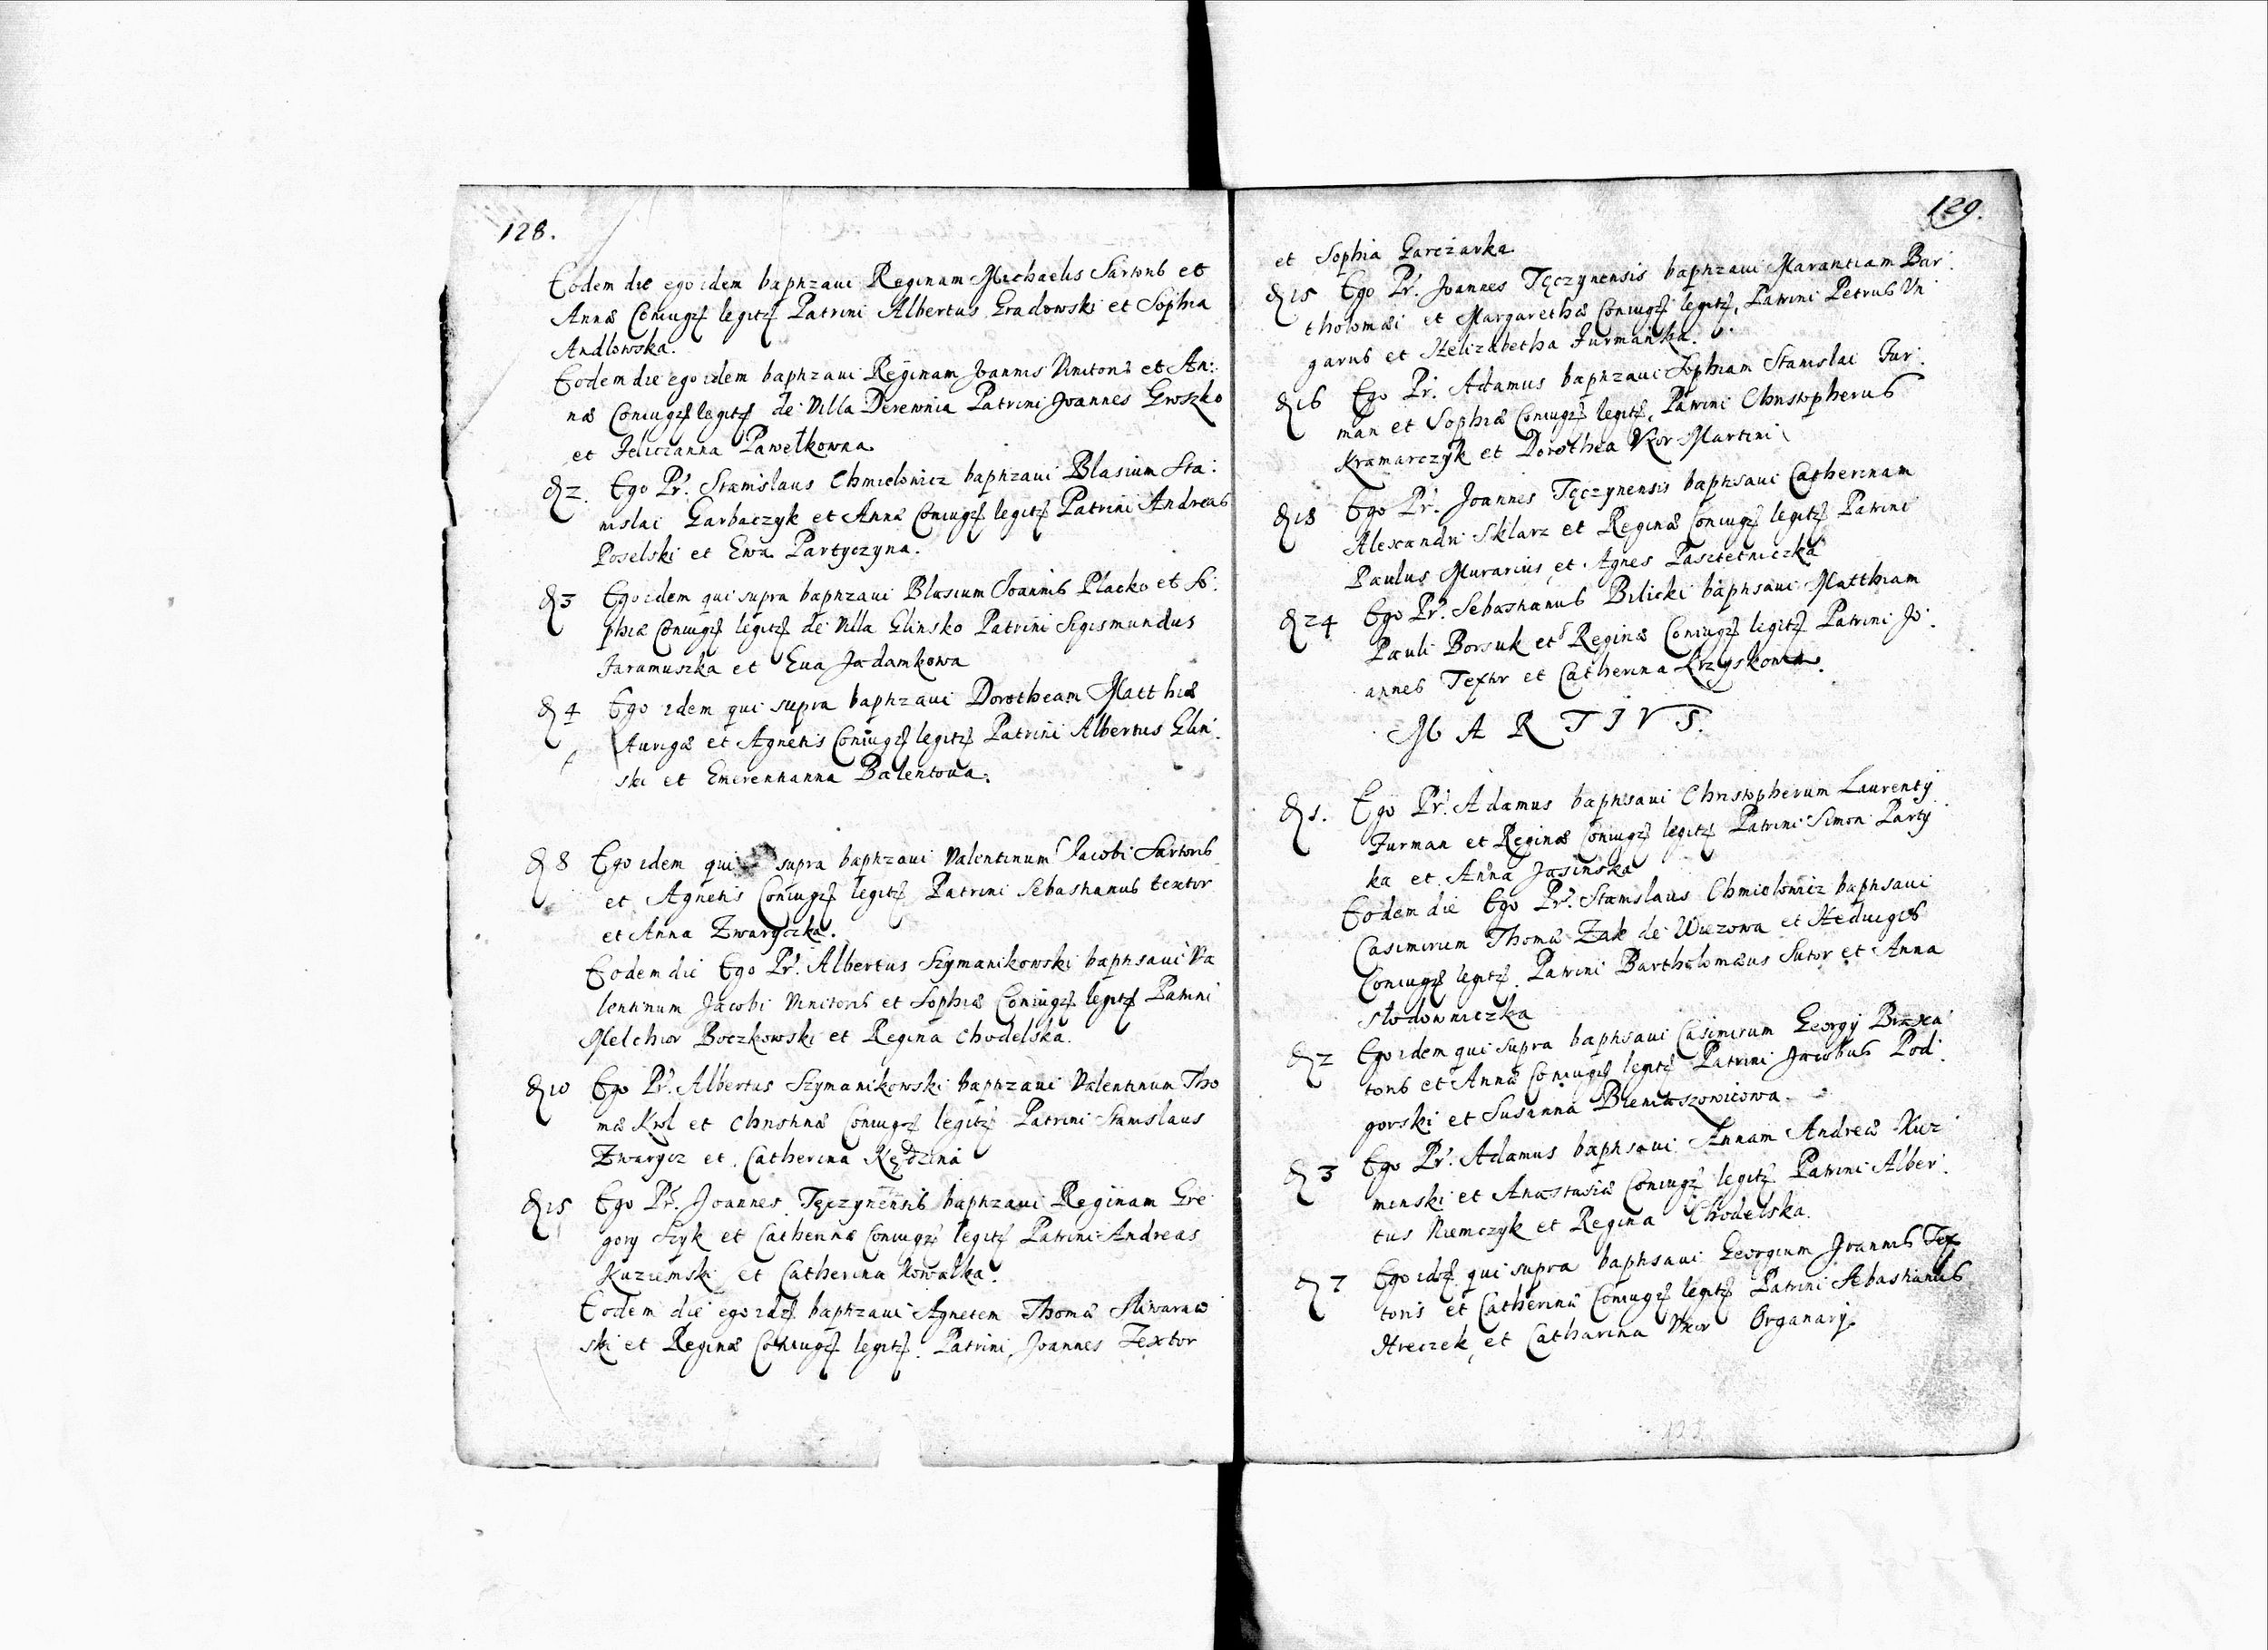 128.
Eodem die ego idem baptizaui Reginam Michaelis Sartoris et
Annæ Coniugũ legitũ Patrini Albertus Gradowski et Sophia
Andlowska.
Eodem die ego idem baptizaui Reginam Joannis Vinitoris et An:
næ Coniugũ legitũ de Villa Derewnia Patrini Joannes Groszko
et Felicianna Pawełkowna
D 2. Ego Pr. Stanislaus Chmielowicz baptizaui Blasium Sta:
nislai Garbaczyk et Annæ Coniugũ legitũ Patrini Andreas
Poselski et Ewa Partyczyna.
D 3 Ego idem qui supra baptizaui Blasium Joannis Placko et So:
phiæ Coniugũ legitũ de Villa Glinsko Patrini Sigismundus
Jaramuszka et Eua Jadamkowa
D 4 Ego idem qui supra baptizaui Dorotheam Matthiæ
Aurigæ et Agnetis Coniugũ legitũ Patrini Albertus Glin:
ski et Emerentianna Balentowa.
D 8 Ego idem qui supra baptizaui Valentinum Jacobi Sartoris
et Agnetis Coniugũ legitũ Patrini Sebastianus textor
et Anna Zwaryczka.
Eodem die Ego Pr. Albertus Szymanikowski baptisaui Va
lentinum Jacobi Vinitoris et Sophiæ Coniugũ legitũ Patrini
Melchior Boczkowski et Regina Chodelska.
D 10 Ego Pr. Albertus Szymanikowski baptizaui Valentinum Tho
mæ Krol et Christinæ Coniugũ legitũ Patrini Stanislaus
Zwarycz et Catherina Kędzina
D 15 Ego Pr. Joannes Tęczynensis baptizaui Reginam Gre
gory Szyk et Catherinæ Coniugũ legitũ Patrini Andreas
Kuziemski et Catherina Kowalka.
Eodem die ego idẽ baptizaui Agnetem Thomæ Sliwaraw
ski et Reginæ Coniugũ legitũ. Patrini Joannes Textor
129.
et Sophia Garczarka
D 15 Ego Pr. Joannes Tęczynensis baptizaui Marantiam Bar:
tholomæi et Margarethæ Coniugũ legitũ, Patrini Petrus Vn
garus et Helizabetha Furmanka.
D 16 Ego Pr. Adamus baptizaui Sophiam Stanislai Fur:
man et Sophiæ Coniugũ legitũ, Patrini Christopherus
Kramarczyk et Dorothea Vxor Martini
D 18 Ego Pr. Joannes Tęczynensis baptisaui Catherinam
Alexandri Sklarz et Reginæ Coniugũ legitũ Patrini
Paulus Murarius et Agnes Pasztetniczka
D 24 Ego Pr. Sebastianus Bilicki baptisaui Matthiam
Pauli Borsuk et Reginæ Coniugũ legitũ Patrini Jo:
annes Textor et Catherina Krzyskowa.
MARTIVS.
D 1. Ego Pr. Adamus baptisaui Christopherum Laurentij
Furman et Reginæ Coniugũ legitũ Patrini Simon Party
ka et Anna Jasinska
Eodem die Ego Pr. Stanislaus Chmielowicz baptisaui
Casimirum Thomæ Zak de Wiezowa et Heduigis
Coniugũ legitũ. Patrini Bartholomæus Sutor et Anna
Słodowniczka
D 2 Ego idem qui supra baptisaui Casimirum Georgij Braxea
toris et Annæ Coniugũ legitũ Patrini Jacobus Pod:
gorski et Susanna Bieniaszowicowa
D 3 Ego Pr. Adamus baptisaui Annam Andreæ Kuz
minski et Anastasiæ Coniugũ legitũ Patrini Alber:
tus Niemczyk et Regina Chodelska.
D 7 Ego idẽ qui supra baptisaui Georgium Joannis Tex
toris et Catherinæ Coniugũ legitũ Patrini Sebastianus
Hreczek et Catharina Vxor Organarij.